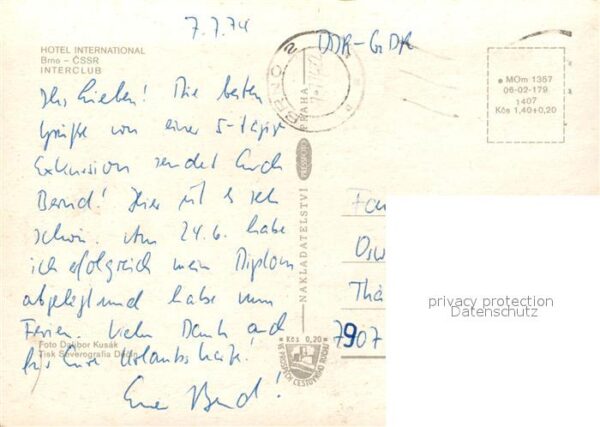 7.7.74
DDR-GDR
HOTEL INTERNATIONAL
Brno - ČSSR
INTERCLUB
BRNO 2
● MOm 1357
06-02-179
1407
Kčs 1,40+0,20
Ihr Lieben! Die besten
Grüße von einer 5-tägig
Exkursion sendet Euch
Bernd! Hier ist es sehr
schön. Am 24.6. habe
ich erfolgreich mein Diplom
abgelegt und habe nun
Ferien. Vielen Dank auch
für Eure Urlaubskarte!
Euer Bernd!
Foto Dalibor Kusák
Tisk Severografia Děčín
NAKLADATELSTVÍ PRESSFOTO PRAHA
Kčs 0,20
PROSPĚCH CESTOVNÍHO RUCHU
Fa
Osw
Thä
7907
privacy protection
Datenschutz